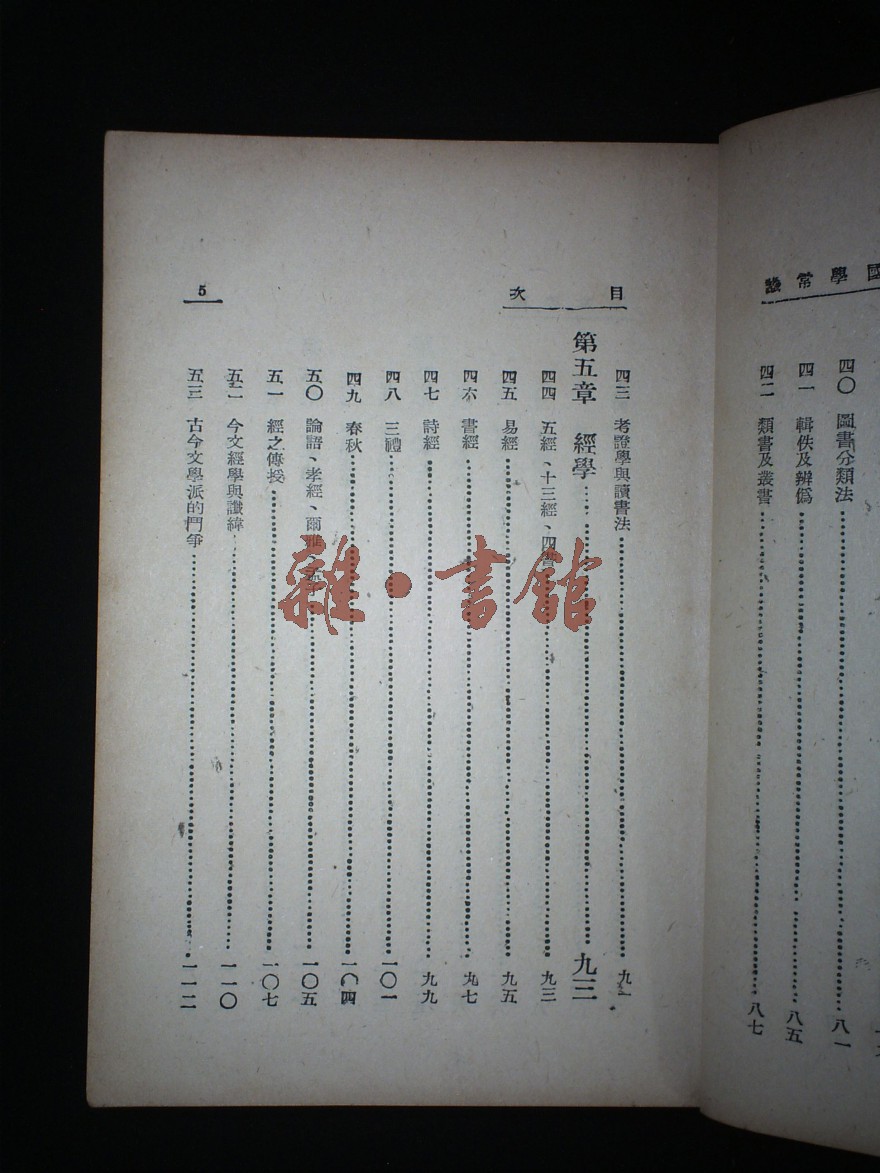 國學常識
四〇 圖書分類法……八一
四一 輯佚及辨僞……八五
四二 類書及叢書……八七
目次
5
四三 考證學與讀書法……九一
第五章 經學……九三
四四 五經、十三經、四書……九三
四五 易經……九五
四六 書經……九七
四七 詩經……九九
四八 三禮……一〇一
四九 春秋……一〇四
五〇 論語、孝經、爾雅、……一〇五
五一 經之傳授……一〇七
五二 今文經學與讖緯……一一〇
五三 古今文學派的鬥爭……一一二
雜·書館